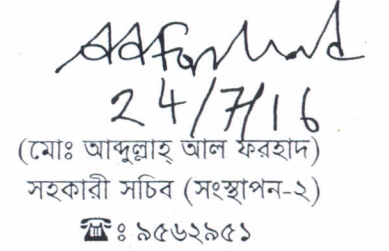 AAFarhad
24/7/16
(মোঃ আব্দুল্লাহ্ আল ফরহাদ)
সহকারী সচিব (সংস্থাপন-২)
☎ঃ ৯৫৬২৯৫১